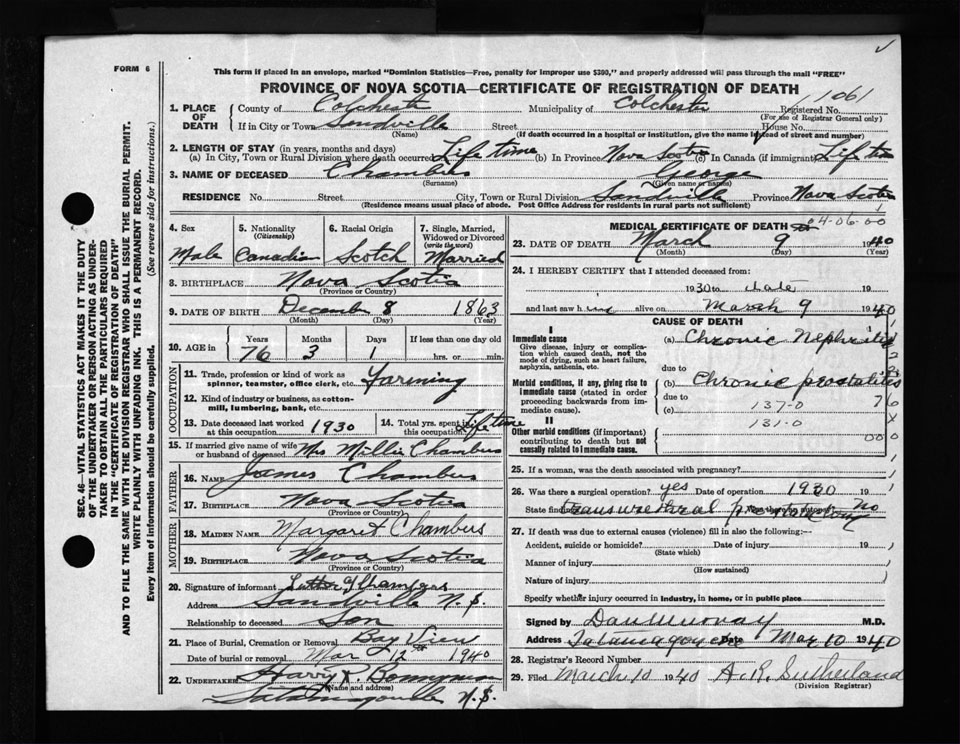 FORM 6
This form if placed in an envelope, marked "Dominion Statistics—Free, penalty for improper use $300," and properly addressed will pass through the mail "FREE"
PROVINCE OF NOVA SCOTIA—CERTIFICATE OF REGISTRATION OF DEATH
1061
1. PLACE OF DEATH County of Colchester Municipality of Colchester Registered No.
(For use of Registrar General only)
If in City or Town Sandville Street House No.
(Name) (If death occurred in a hospital or institution, give the name instead of street and number)
2. LENGTH OF STAY (in years, months and days)
(a) In City, Town or Rural Division where death occurred Life time (b) In Province Nova Scotia (c) In Canada (if immigrant) Life time
3. NAME OF DECEASED Chambers George
(Surname) (Given name or names)
RESIDENCE No. Street City, Town or Rural Division Sandville Province Nova Scotia
(Residence means usual place of abode. Post Office Address for residents in rural parts not sufficient)
4. Sex 5. Nationality (Citizenship) 6. Racial Origin 7. Single, Married, Widowed or Divorced (write the word)
Male Canadian Scotch Married
8. BIRTHPLACE Nova Scotia
(Province or Country)
9. DATE OF BIRTH December 8 1863
(Month) (Day) (Year)
10. AGE in Years Months Days If less than one day old
76 3 1 hrs. or min.
OCCUPATION
11. Trade, profession or kind of work as spinner, teamster, office clerk, etc. Farming
12. Kind of industry or business, as cotton-mill, lumbering, bank, etc.
13. Date deceased last worked at this occupation 1930 14. Total yrs. spent in this occupation Life time
15. If married give name of wife or husband of deceased Mrs Millie Chambers
FATHER
16. NAME James Chambers
17. BIRTHPLACE Nova Scotia
(Province or Country)
MOTHER
18. MAIDEN NAME Margaret Chambers
19. BIRTHPLACE Nova Scotia
(Province or Country)
20. Signature of informant Luther G Chambers
Address Sandville N.S.
Relationship to deceased Son
21. Place of Burial, Cremation or Removal Bay View
Date of burial or removal Mar 12th 1940
22. UNDERTAKER Harry R. Bonnyman
(Name and address)
Tatamagouche N.S.
MEDICAL CERTIFICATE OF DEATH
04-06-00
23. DATE OF DEATH March 9 1940
(Month) (Day) (Year)
24. I HEREBY CERTIFY that I attended deceased from:
1930 to date 19
and last saw him alive on March 9 1940
CAUSE OF DEATH
I
Immediate cause
Give disease, injury or complication which caused death, not the mode of dying, such as heart failure, asphyxia, asthenia, etc.
(a) Chronic Nephritis
due to
Morbid conditions, if any, giving rise to immediate cause (stated in order proceeding backwards from immediate cause).
(b) Chronic prostatitis
due to
(c) 137-0
II
131-0
Other morbid conditions (if important) contributing to death but not causally related to immediate cause.
25. If a woman, was the death associated with pregnancy?
26. Was there a surgical operation? yes Date of operation 1930
State findings Transurethral Was there an autopsy? No
27. If death was due to external causes (violence) fill in also the following:—
Accident, suicide or homicide? Date of injury 19
(State which)
Manner of injury
(How sustained)
Nature of injury
Specify whether injury occurred in industry, in home, or in public place
Signed by Dan Murray M.D.
Address Tatamagouche Date Mar 10 1940
28. Registrar's Record Number
29. Filed March 10 1940 A. R. Sutherland
(Division Registrar)
SEC. 46—VITAL STATISTICS ACT MAKES IT THE DUTY
OF THE UNDERTAKER OR PERSON ACTING AS UNDER-
TAKER TO OBTAIN ALL THE PARTICULARS REQUIRED
IN THE "CERTIFICATE OF REGISTRATION OF DEATH"
AND TO FILE THE SAME WITH THE DIVISION REGISTRAR WHO SHALL ISSUE THE BURIAL PERMIT.
WRITE PLAINLY WITH UNFADING INK. THIS IS A PERMANENT RECORD.
Every item of information should be carefully supplied. (See reverse side for instructions.)